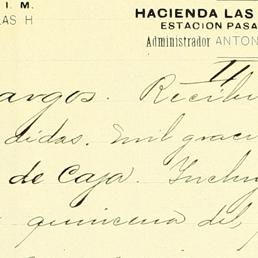 I. M. HACIENDA LAS
LAS H ESTACION PASA
Administrador ANTON
argos. Recibi
didas. Mil graci
de Caja. Inclu
quincena del